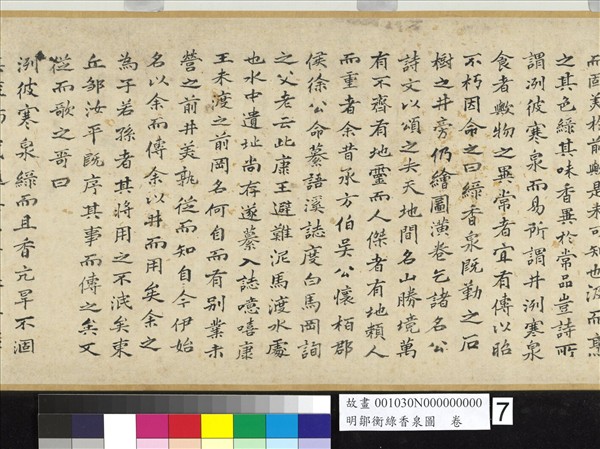 而固美於前歟是未可知也汲而烹
之其色綠其味香異於常品豈詩所
謂冽彼寒泉而易所謂井冽寒泉
食者歟物之異常者宜有傳以昭
不朽因命之曰綠香泉既勒之石
樹之井旁仍繪圖潢卷乞諸名公
詩文以頌之夫天地間名山勝境萬
有不齊有地靈而人傑者有地賴人
而重者余昔承方伯吳公懷栢郡
侯徐公命纂語溪誌度白馬岡詢
之父老云此康王避難泥馬渡水處
也水中遺址尚存遂纂入誌噫嘻康
王未渡之前岡名何自而有别業未
營之前井美孰從而知自今伊始
名以余而傳余以井而用矣余之
為子若孫者其將用之不泯矣東
丘鄒汝平既序其事而傳之矣文
從而歌之哥曰
冽彼寒泉綠而且香亢旱不涸
故畫 001030N000000000
明鄒衡綠香泉圖 卷
7